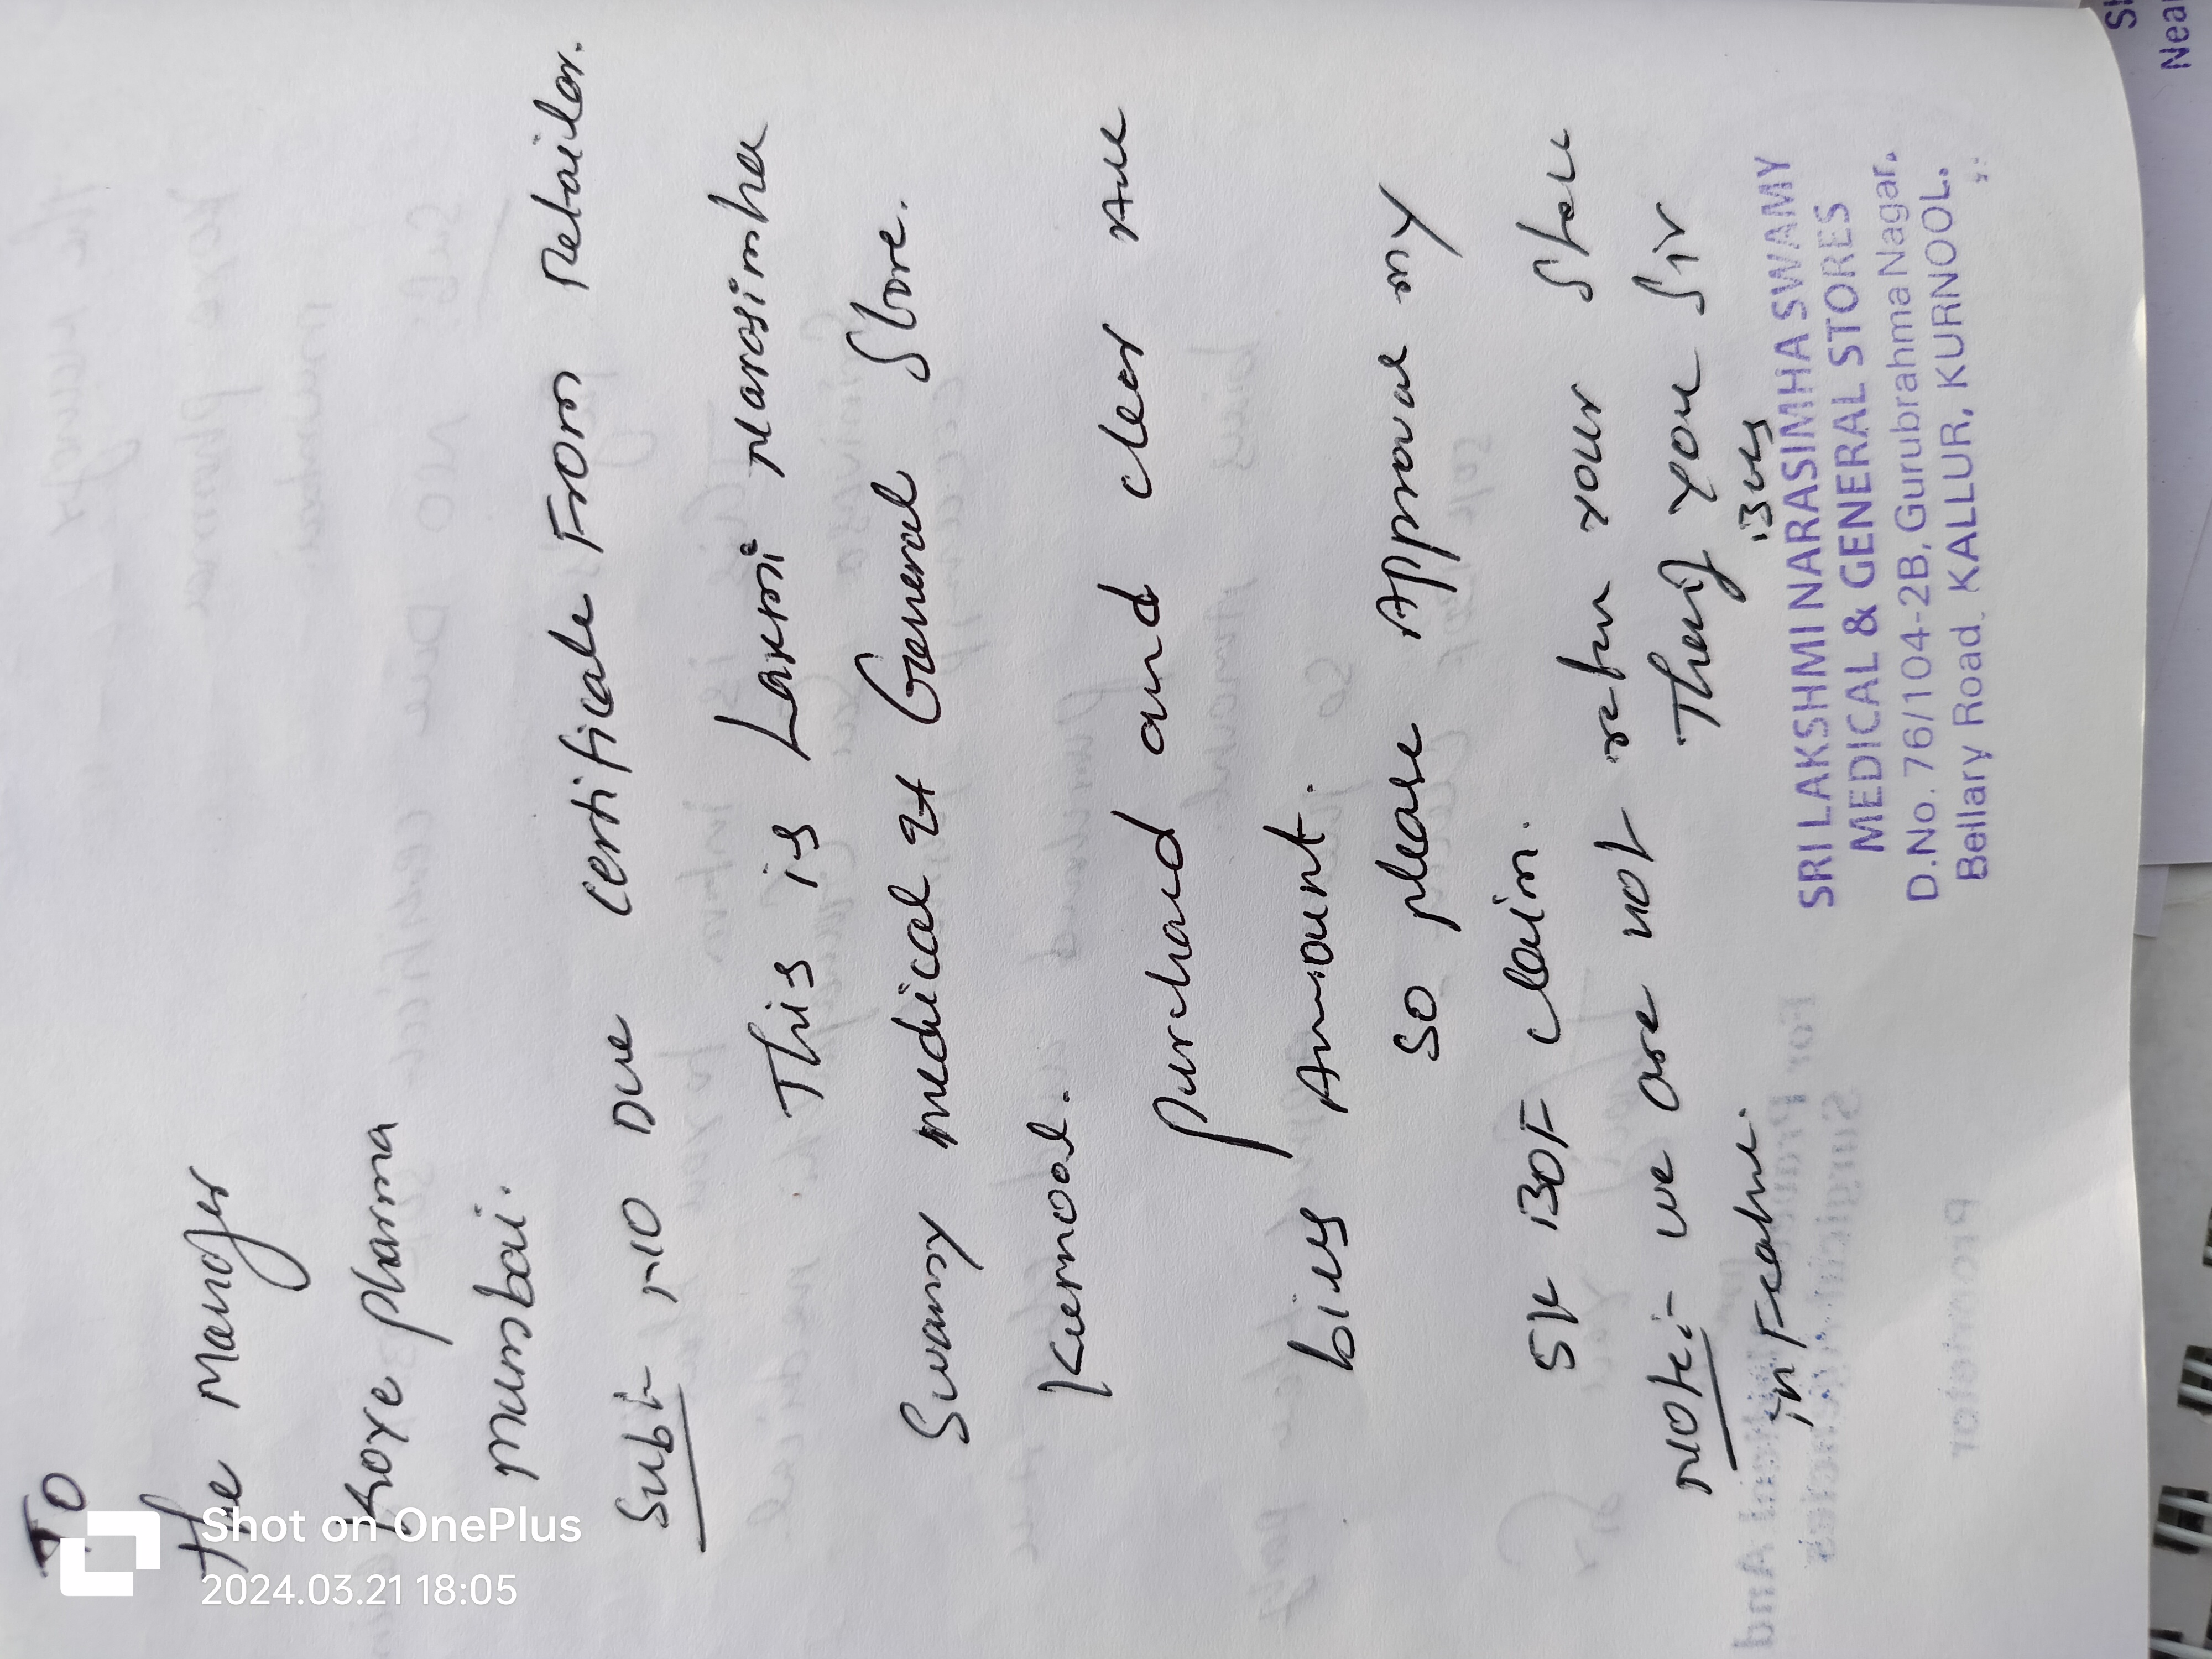 To
The Manager
Koye pharma
mumbai.
Sub:- NO Due certificate From Retailor.
This is Laxmi Narasimha
Swamy medical & General Store.
Kurnool.
purchasd and clear All
bills Amount.
SO please Approval my
SK BOF claim.
Note:- we are not retun your
in Feature.
you Sir
SRI LAKSHMI NARASIMHA SWAMY
MEDICAL & GENERAL STORES
D.No. 76/104-2B, Gurubrahma Nagar,
Bellary Road, KALLUR, KURNOOL.
Shot on OnePlus
2024.03.21 18:05